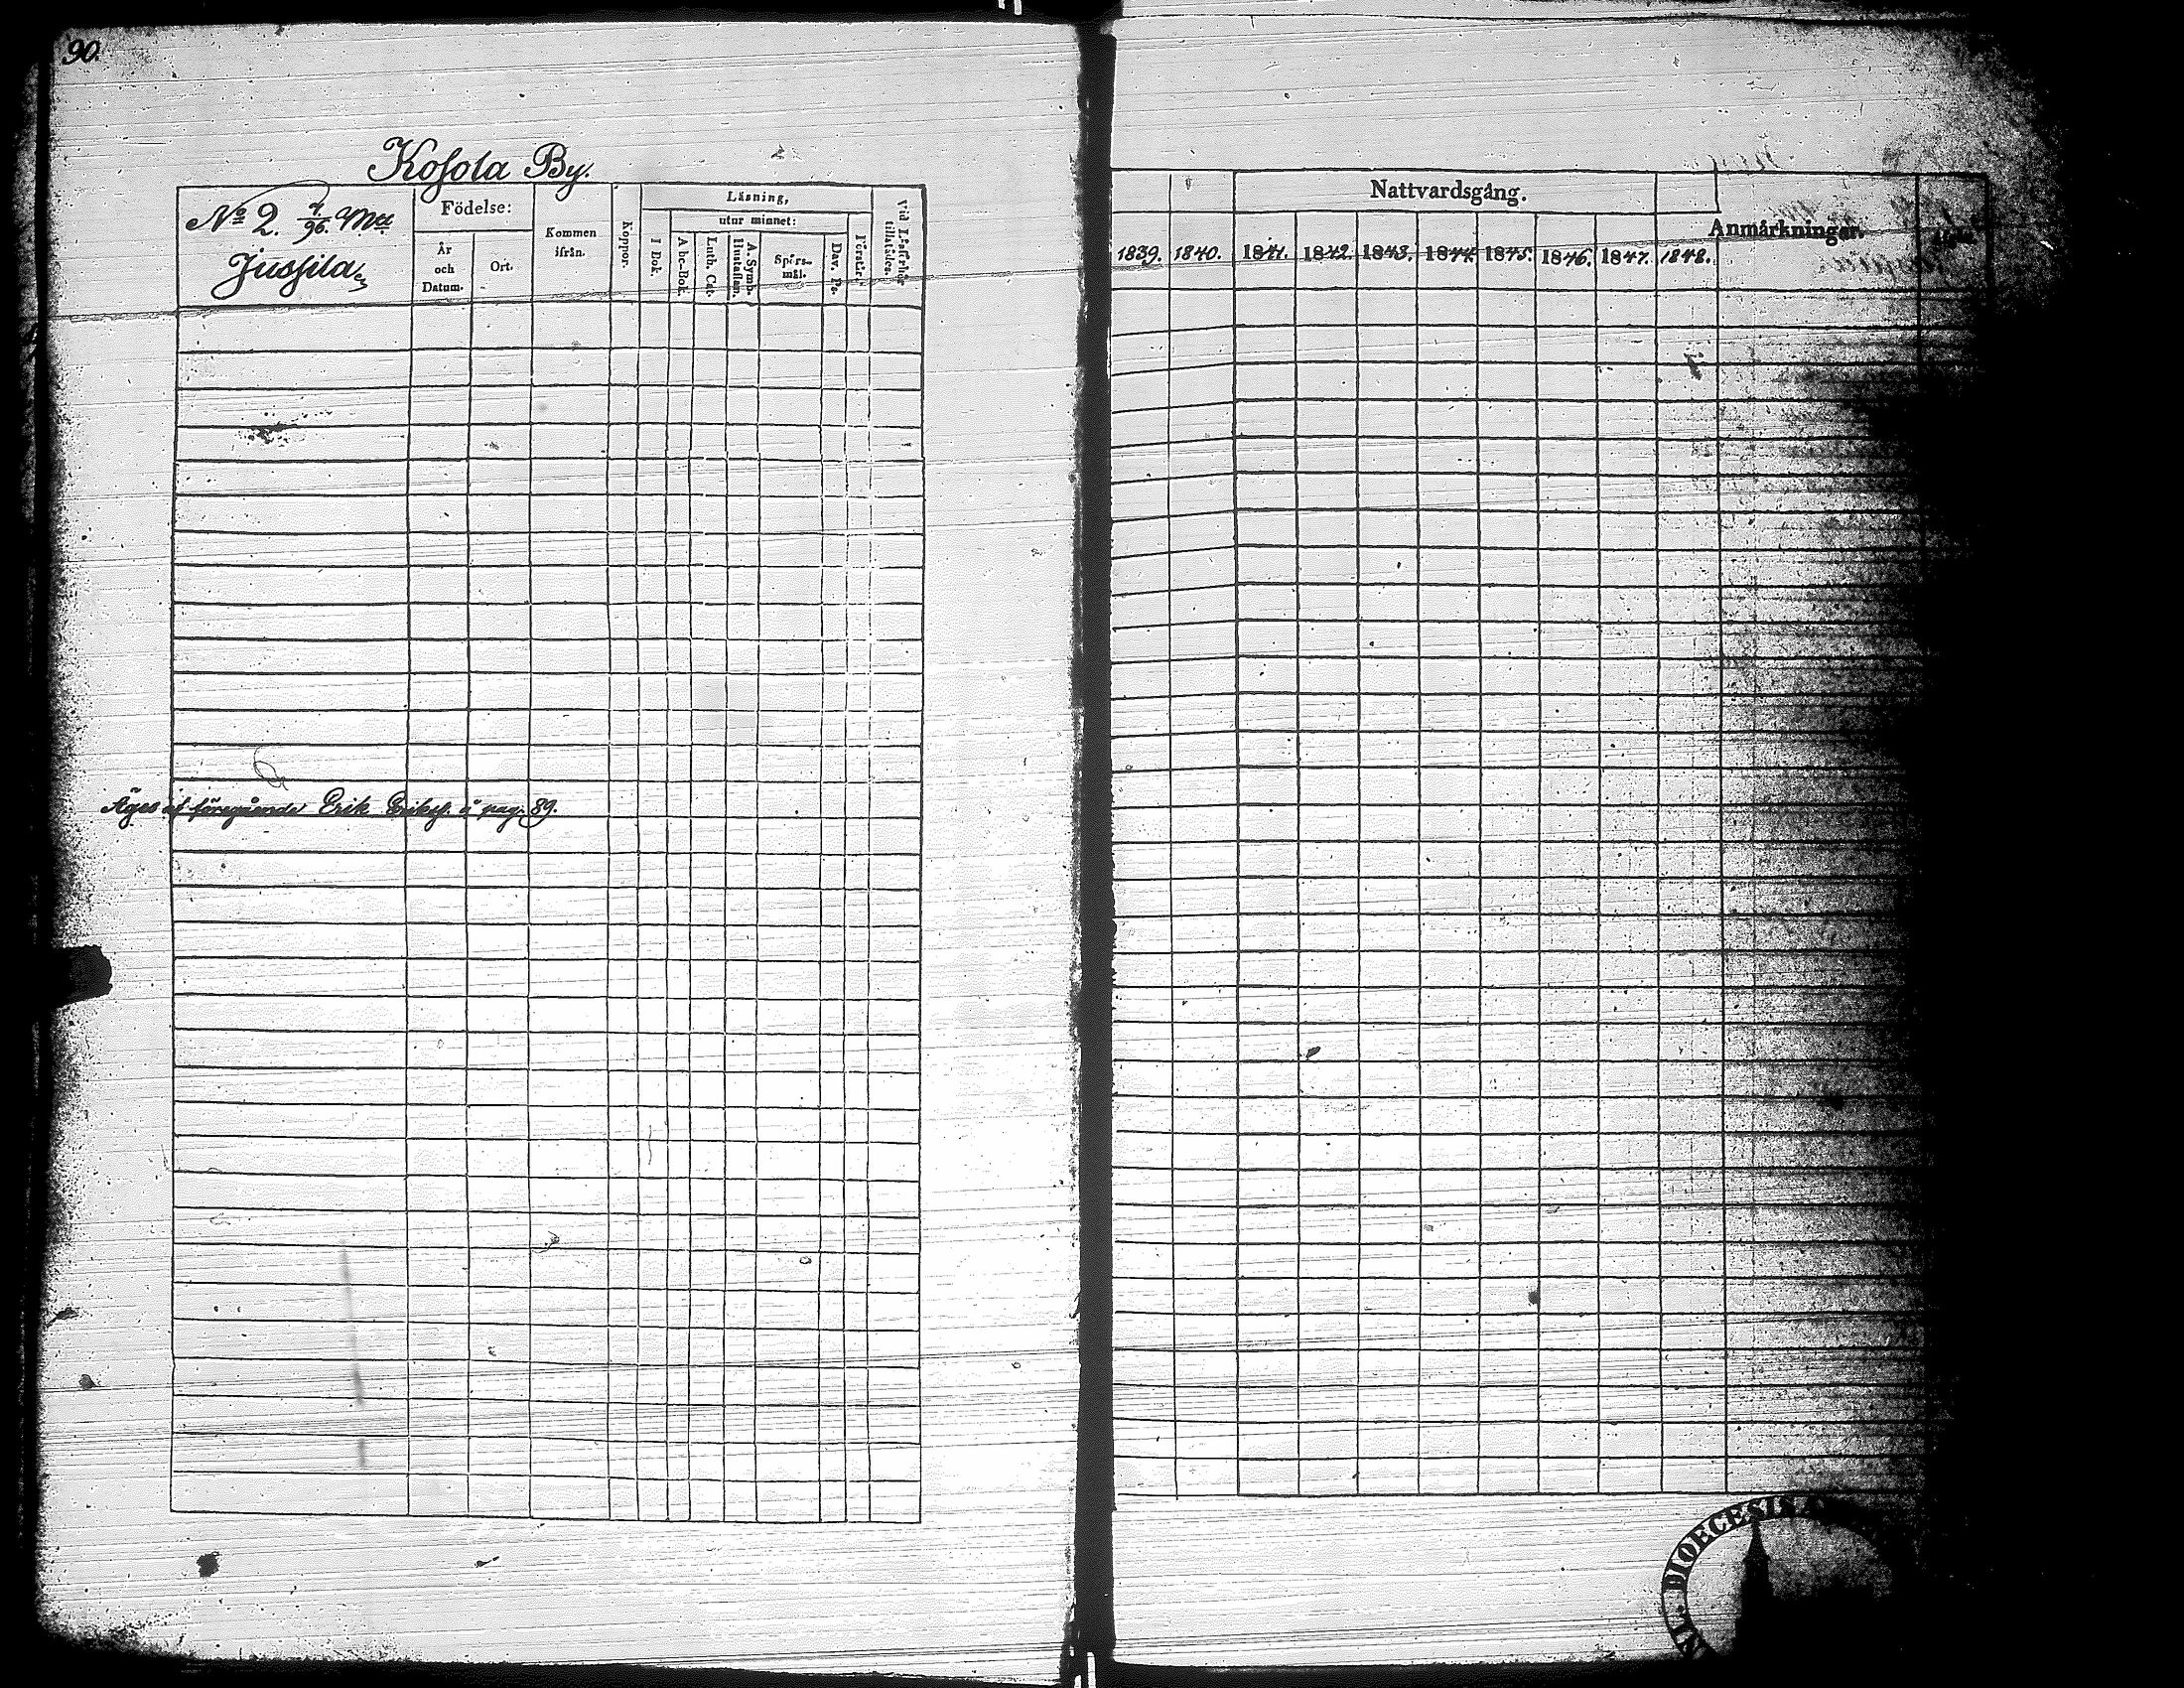 90.
Kosola By.
No 2. 7/96. Mtl
Jussila
Födelse:
År och Datum.
Ort.
Kommen ifrån.
Koppor.
Läsning,
I Bok.
utur minnet:
A b c-Bok.
Luth. Cat.
A. Symb. Hustaflan.
Spörs-mål.
Dav. Ps.
Förstår.
Vid Läseförhör tillstädes.
Äges af föregående Erik Eriksf. å pag. 89.
Nattvardsgång.
1839. 1840. 1841. 1842. 1843. 1844 1845. 1846. 1847. 1848.
Anmärkningar.
DIOECESIS